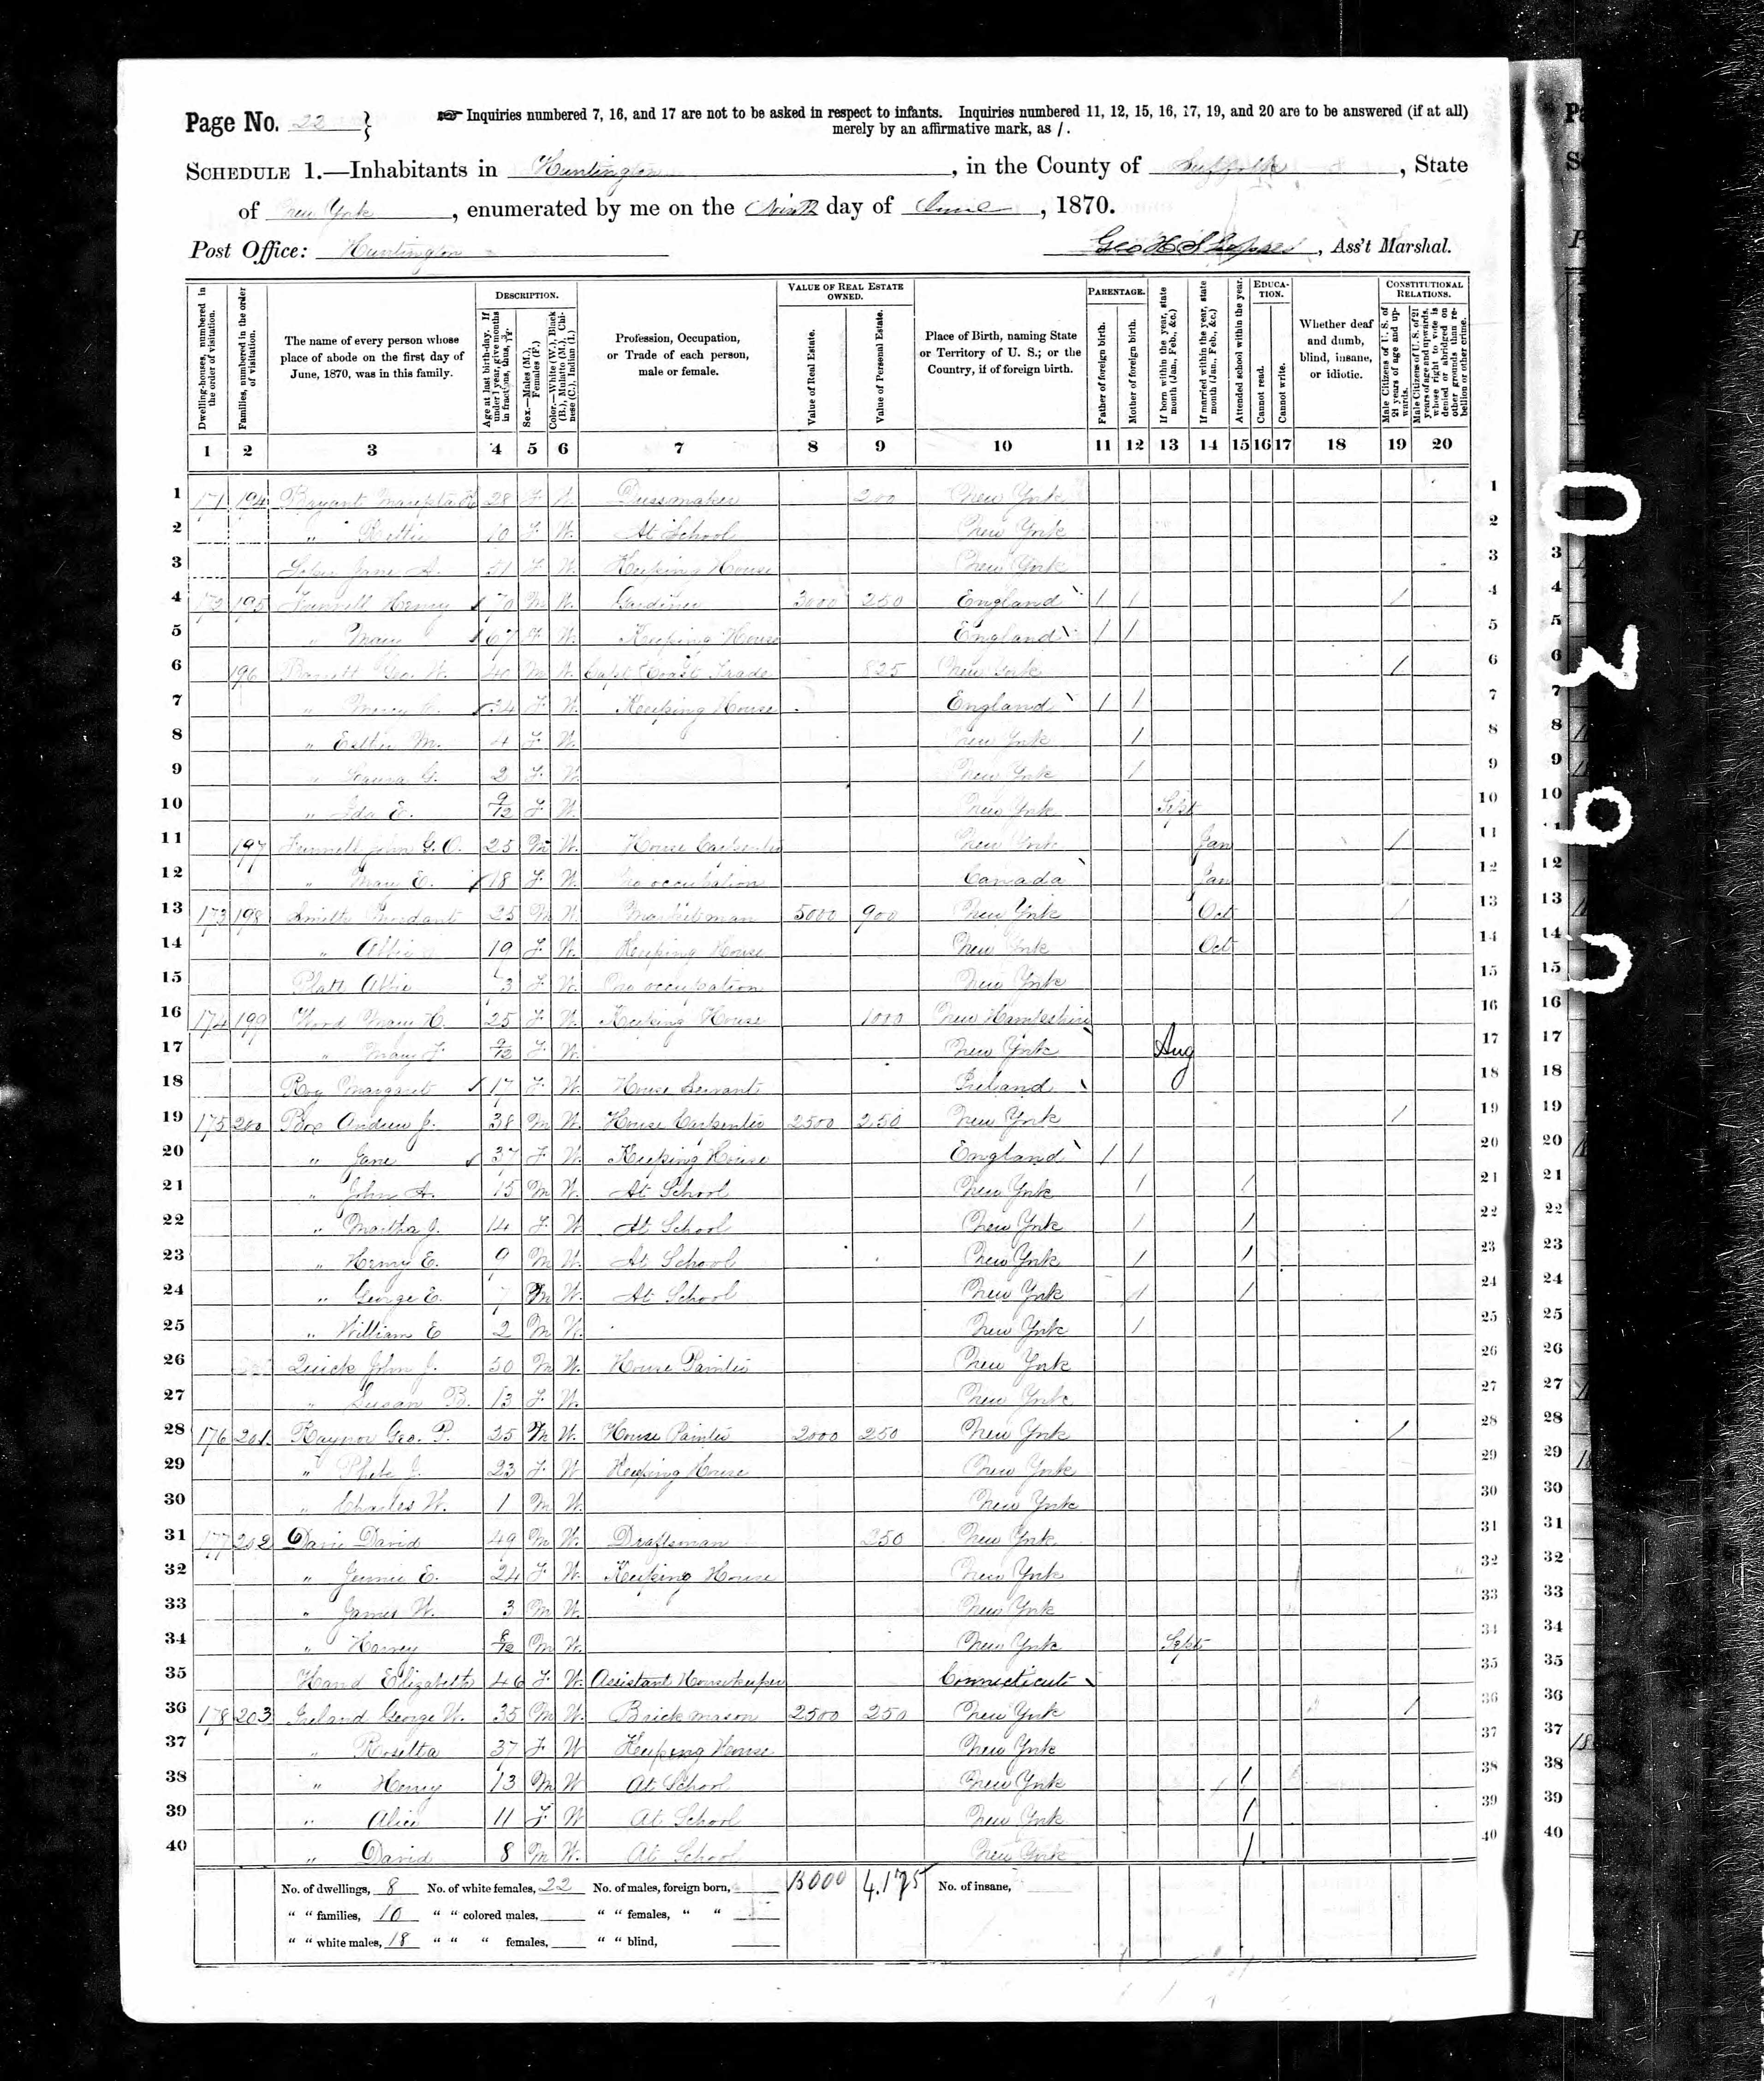 Page No. 22
☞ Inquiries numbered 7, 16, and 17 are not to be asked in respect to infants. Inquiries numbered 11, 12, 15, 16, 17, 19, and 20 are to be answered (if at all)
merely by an affirmative mark, as /.
SCHEDULE 1.—Inhabitants in Huntington, in the County of Suffolk, State
of New York, enumerated by me on the Ninth day of June, 1870.
Post Office: Huntington
Geo H, Ass't Marshal.
Dwelling-houses, numbered in the order of visitation.
Families, numbered in the order of visitation.
The name of every person whose place of abode on the first day of June, 1870, was in this family.
DESCRIPTION.
Age at last birth-day. If under 1 year, give months in fractions, thus, 3/12.
Sex.—Males (M.), Females (F.)
Color.—White (W.), Black (B.), Mulatto (M.), Chinese (C.), Indian (I.)
Profession, Occupation, or Trade of each person, male or female.
VALUE OF REAL ESTATE OWNED.
Value of Real Estate.
Value of Personal Estate.
Place of Birth, naming State or Territory of U. S.; or the Country, if of foreign birth.
PARENTAGE.
Father of foreign birth.
Mother of foreign birth.
If born within the year, state month (Jan., Feb., &c.)
If married within the year, state month (Jan., Feb., &c.)
Attended school within the year.
EDUCATION.
Cannot read.
Cannot write.
Whether deaf and dumb, blind, insane, or idiotic.
CONSTITUTIONAL RELATIONS.
Male Citizens of U. S. of 21 years of age and upwards.
Male Citizens of U. S. of 21 years of age and upwards, whose right to vote is denied or abridged on other grounds than rebellion or other crime.
1 2 3 4 5 6 7 8 9 10 11 12 13 14 15 16 17 18 19 20
1 171 194 Bryant 28 F W Dressmaker 200 New York 1
2 " 10 F W. At School New York 2
3 Jane A. 51 F W. Keeping House New York 3
4 172 195 Funnell Henry 70 M W. Gardiner 3000 250 England / / / 4
5 " Mary 67 F W. Keeping House England / / 5
6 196 Geo. W. 40 M W. Capt Coast Trade 825 New York / 6
7 " 34 F W. Keeping House England / / 7
8 " Esther M. 4 F W. New York / 8
9 " Laura G. 2 F W. New York / 9
10 " Ida E. 9/12 F W. New York Sept 10
11 197 Funnell John G. O. 25 M W. House Carpenter New York Jan / 11
12 " Mary E. 18 F W. No occupation Canada Jan 12
13 173 198 Smith 25 M W. Marketman 5000 900 New York Oct / 13
14 " Abbie 19 F W. Keeping House New York Oct 14
15 Platt Abbie 3 F W. No occupation New York 15
16 174 199 Wood Mary H. 25 F W. Keeping House 1000 New Hampshire 16
17 " Mary F. 9/12 F W. New York Aug 17
18 Roy Margaret 17 F W. House Servant Ireland 18
19 175 200 Andrew J. 38 M W. House Carpenter 2500 250 New York / 19
20 " Jane 37 F W. Keeping House England / / 20
21 " John A. 15 M W. At School New York / / 21
22 " Martha J. 14 F W At School New York / / 22
23 " Henry E. 9 M W. At School New York / / 23
24 " George E. 7 M W. At School New York / / 24
25 " William E 2 M W. New York / 25
26 Quick John J. 50 M W. House Painter New York 26
27 " Susan B. 13 F W. New York 27
28 176 201 Raynor Geo. P. 25 M W. House Painter 2000 250 New York / 28
29 " Phebe J. 23 F W Keeping House New York 29
30 " Charles W. 1 M W. New York 30
31 177 202 Davis David 49 M W. Draftsman 250 New York 31
32 " Jennie E. 24 F W. Keeping House New York 32
33 " James W. 3 M W. New York 33
34 " Harvey 8/12 M W. New York Sept 34
35 Hand Elizabeth 46 F W. Assistant Housekeeper Connecticut 35
36 178 203 Ireland George W. 35 M W. Brick mason 2500 250 New York / 36
37 " Rosetta 37 F W Keeping House New York 37
38 " Henry 13 M W At School New York / 38
39 " Alice 11 F W At School New York / 39
40 " David 8 M W. At School New York / 40
No. of dwellings, 8 No. of white females, 22 No. of males, foreign born, 15000 4.175 No. of insane,
" " families, 10 " " colored males, " " females, " "
" " white males, 18 " " " females, " " blind,